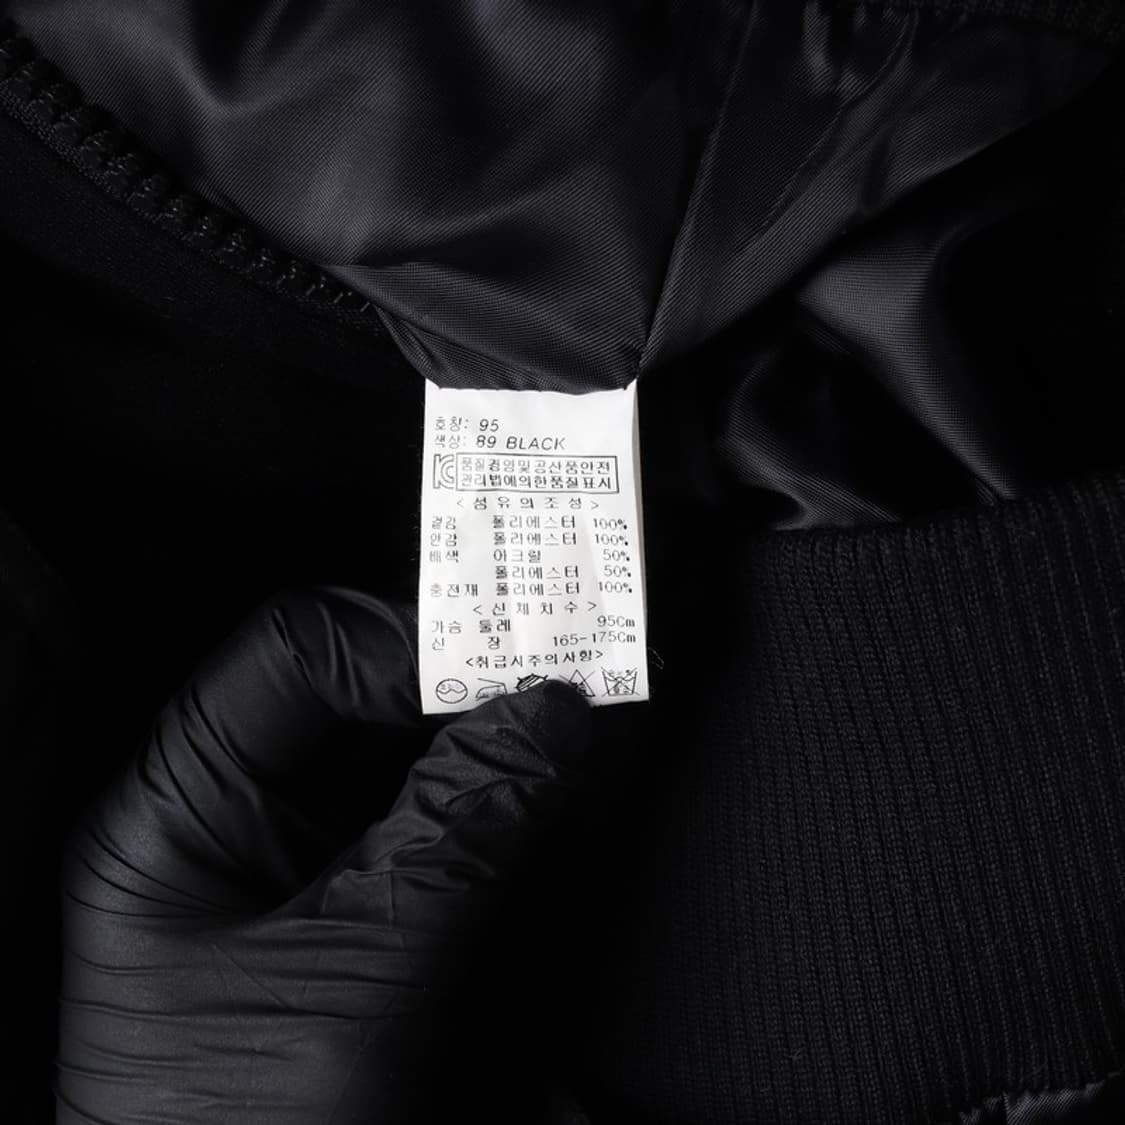 호칭: 95
색상: 89 BLACK
KC 품질경영및공산품안전
관리법에의한품질표시
<섬유의조성>
겉감 폴리에스터 100%
안감 폴리에스터 100%
배색 아크릴 50%
폴리에스터 50%
충전재 폴리에스터 100%
<신체치수>
가슴 둘레 95Cm
신 장 165-175Cm
<취급시주의사항>